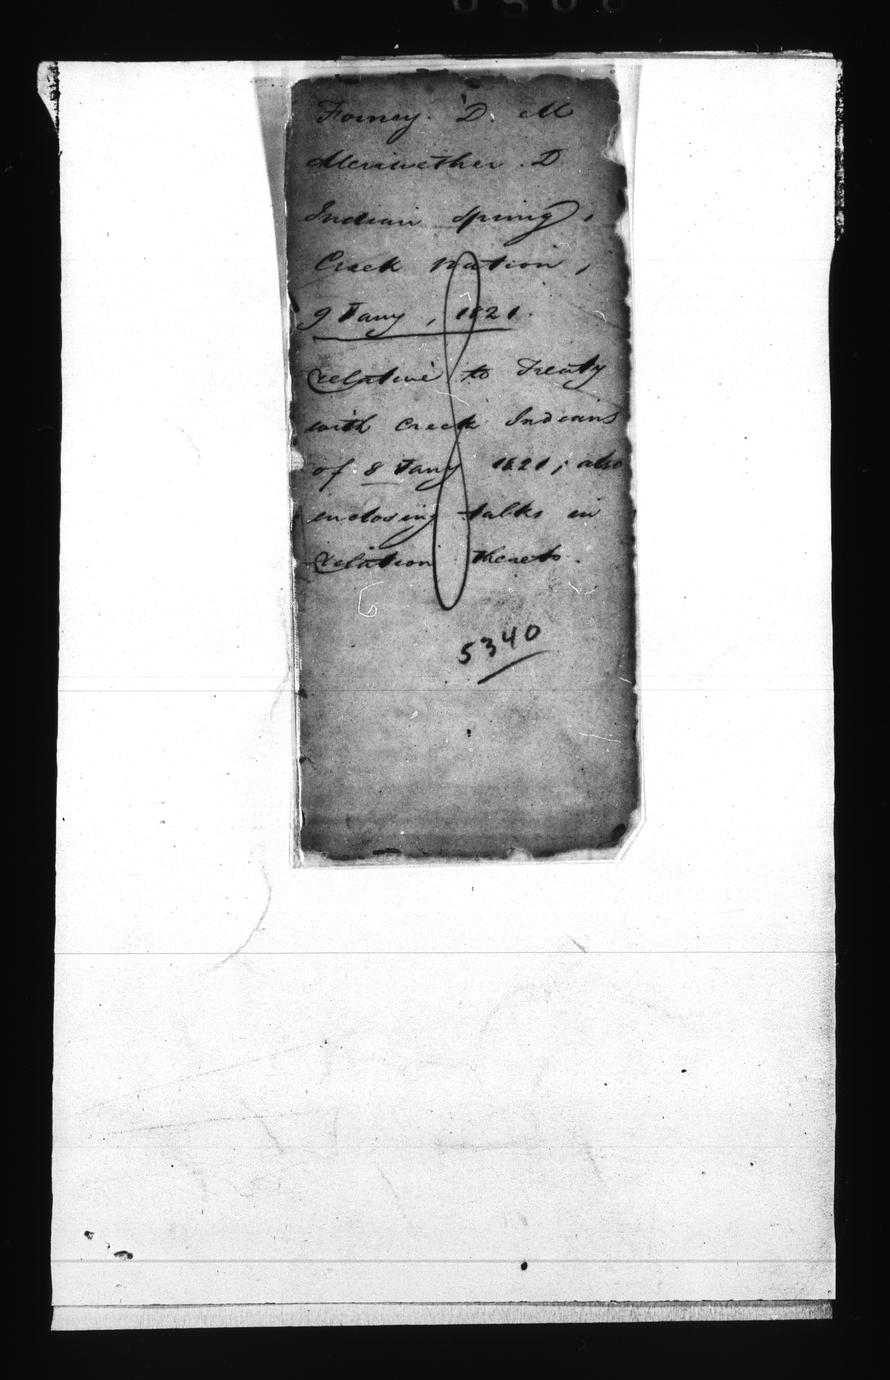 Forney. D. M
Meriwether. D
Indian Spring,
Creek Nation,
9 Jany, 1821.
relative to Treaty
with Creek Indians
of 8 Jany 1821; also
enclosing talks in
relation thereto.
5340